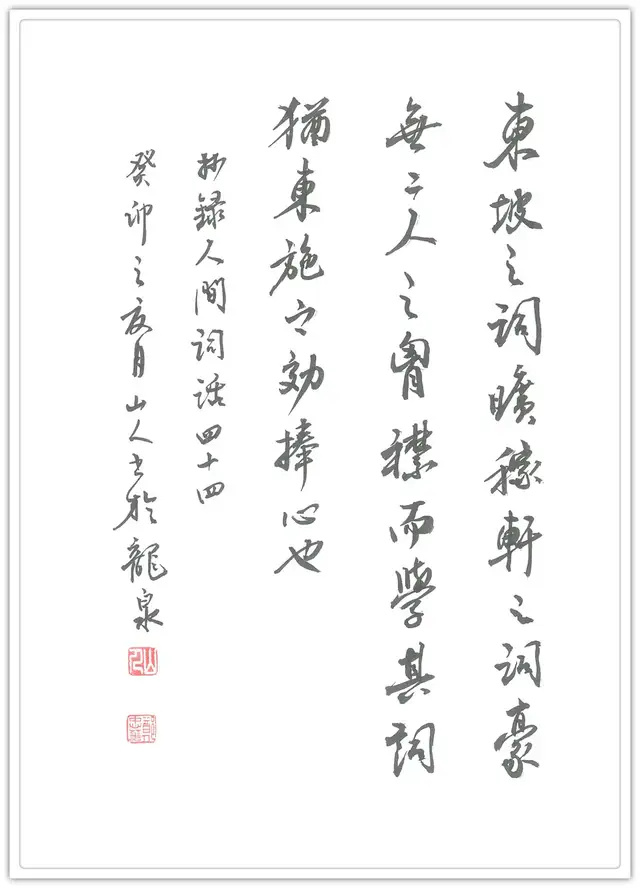 東坡之詞曠稼軒之詞豪
無二人之胷襟而學其詞
猶東施之効捧心也
抄録人間詞話四十四
癸卯之夜月山人書於龍泉
山人